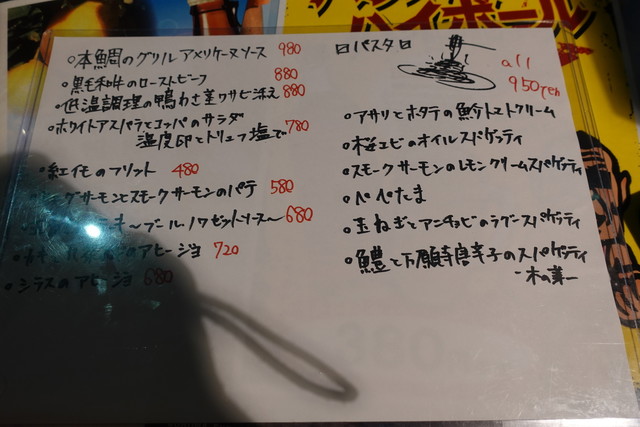 本鯛のグリル アメリケーヌソース 980
黒毛和牛のローストビーフ 880
低温調理の鴨わさ 葉ワサビ添え 880
ホワイトアスパラとコッパのサラダ
温度卵とトリュフ塩で 780
紅イモのフリット 480
サーモンとスモークサーモンのパテ 580
～ブールノワゼットソース～ 680
のアヒージョ 720
シラスのアヒージョ 680
パスタ
all
950yen
アサリとホタテの トマトクリーム
桜エビのオイルスパゲッティ
スモークサーモンのレモンクリームスパゲッティ
ペペたま
玉ねぎとアンチョビのラグースパゲッティ
鱧と万願寺唐辛子のスパゲッティ
木の葉
ハイボール